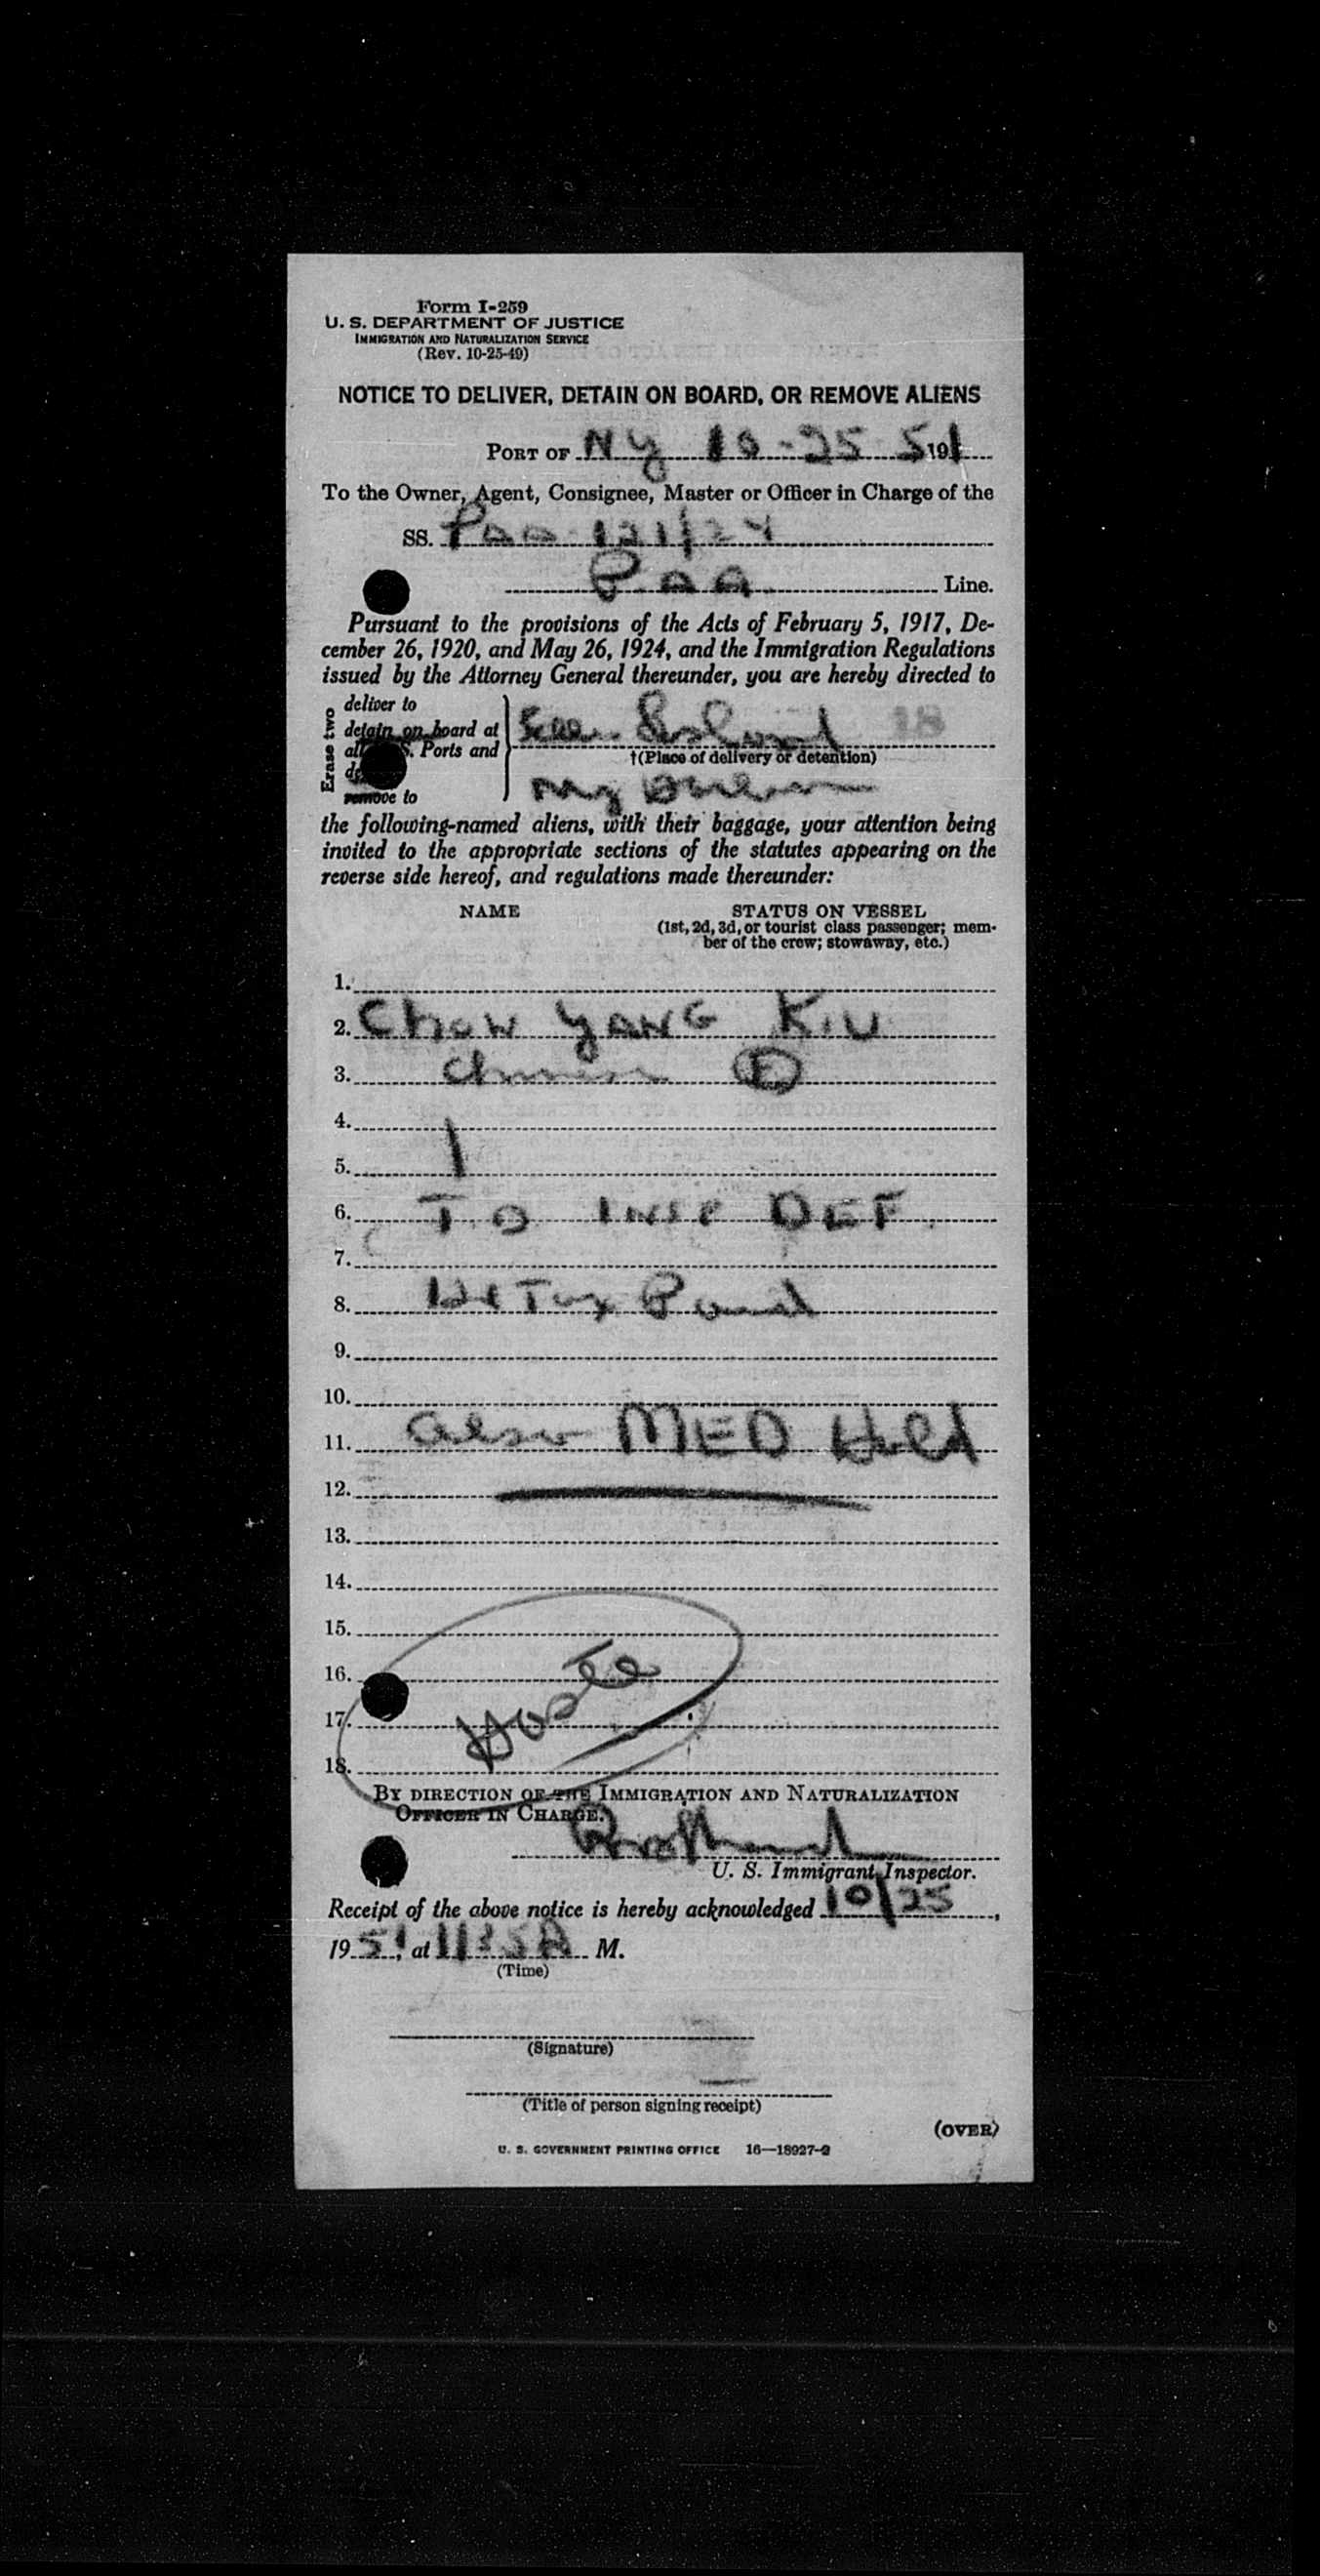 Form I-259
U. S. DEPARTMENT OF JUSTICE
IMMIGRATION AND NATURALIZATION SERVICE
(Rev. 10-25-49)
NOTICE TO DELIVER, DETAIN ON BOARD, OR REMOVE ALIENS
PORT OF NY 10-25 5191
To the Owner, Agent, Consignee, Master or Officer in Charge of the
SS. PAA 121/24
PAA Line.
Pursuant to the provisions of the Acts of February 5, 1917, De-
cember 26, 1920, and May 26, 1924, and the Immigration Regulations
issued by the Attorney General thereunder, you are hereby directed to
Erase two
deliver to
detain on board at
Ports and
remove to
Island 18
†(Place of delivery or detention)
Ny
the following-named aliens, with their baggage, your attention being
invited to the appropriate sections of the statutes appearing on the
reverse side hereof, and regulations made thereunder:
NAME STATUS ON VESSEL
(1st, 2d, 3d, or tourist class passenger; mem-
ber of the crew; stowaway, etc.)
1.
2. CHOW YANG KIU
3. Chinese
4.
5.
6. T.O INSP DEF.
7.
8. Hd Tax Paid
9.
10.
11. also MED Hold
12.
13.
14.
15.
16.
17.
18.
BY DIRECTION OF THE IMMIGRATION AND NATURALIZATION
OFFICER IN CHARGE.
U. S. Immigrant Inspector.
Receipt of the above notice is hereby acknowledged 10/25,
1951, at 1135A M.
(Time)
(Signature)
(Title of person signing receipt)
(OVER)
U. S. GOVERNMENT PRINTING OFFICE 16—18927-2